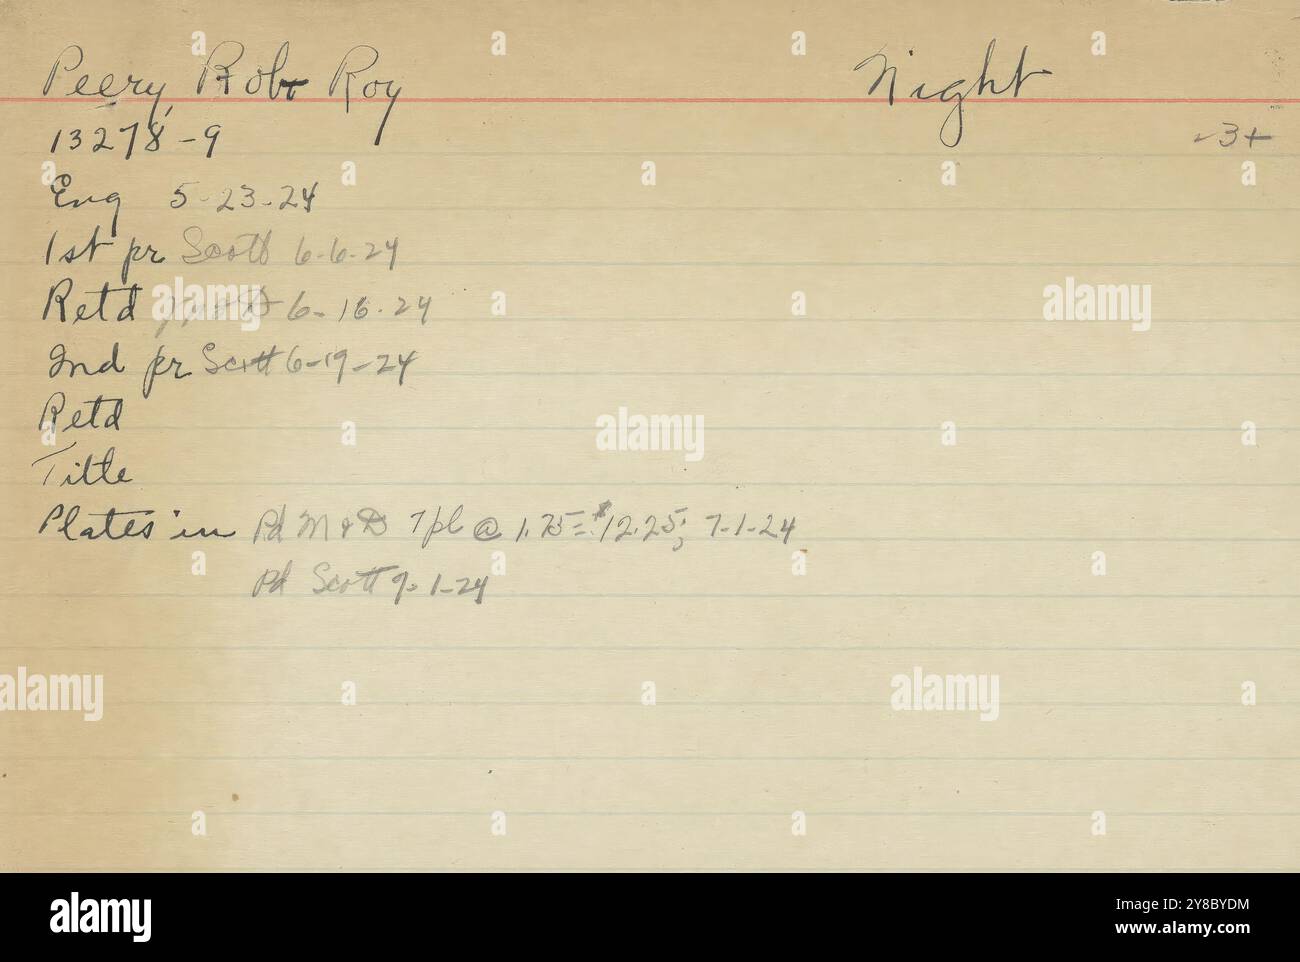 Peery, Robt Roy
Night
13278-9
-3+
Eng 5-23-24
1st pr Scott 6-6-24
Retd M & D 6-16-24
2nd pr Scott 6-19-24
Retd
Title
Plates in Pd M & D 7 pl @ 1.75 = $12.25; 7-1-24
Pd Scott 9-1-24
alamy
alamy
Image ID: 2Y8BYDM
www.alamy.com